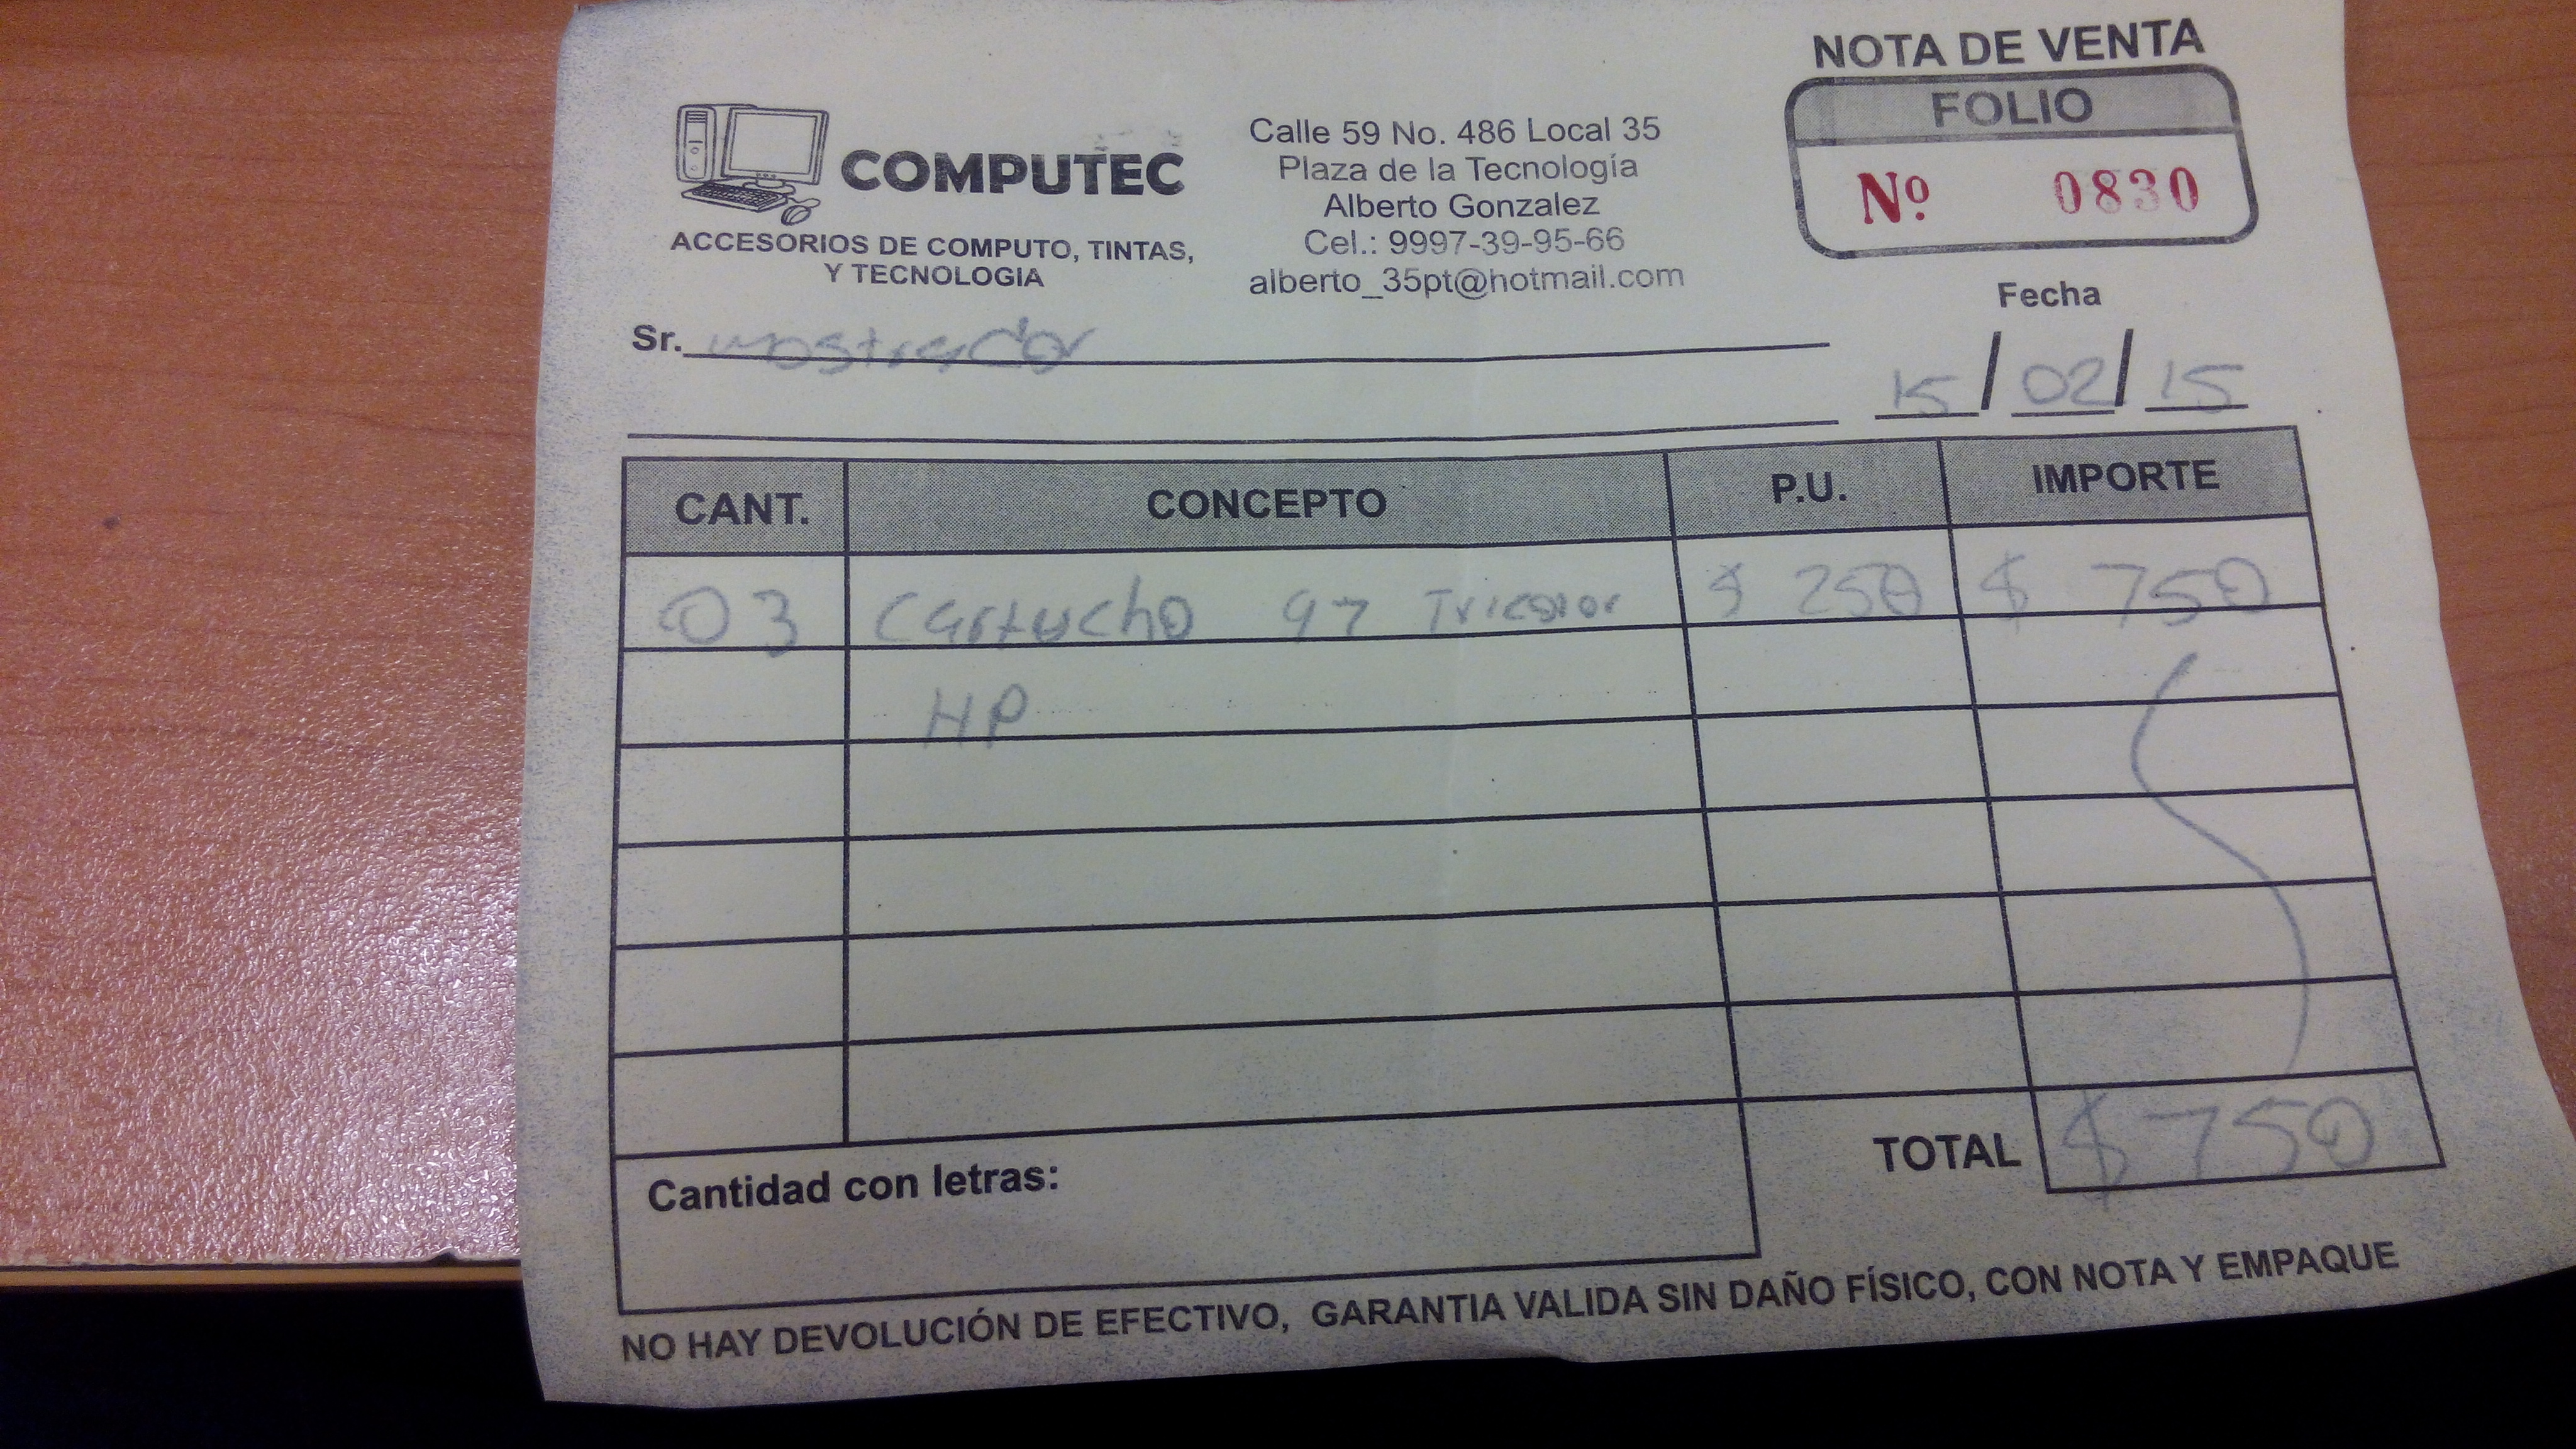 NOTA DE VENTA
FOLIO
Nº 0830
COMPUTEC
ACCESORIOS DE COMPUTO, TINTAS,
Y TECNOLOGIA
Calle 59 No. 486 Local 35
Plaza de la Tecnología
Alberto Gonzalez
Cel.: 9997-39-95-66
alberto_35pt@hotmail.com
Fecha
15/02/15
Sr. mostrador
CANT. CONCEPTO P.U. IMPORTE
03 Cartucho 97 Tricolor $ 250 $ 750
HP
TOTAL $ 750
Cantidad con letras:
NO HAY DEVOLUCIÓN DE EFECTIVO, GARANTIA VALIDA SIN DAÑO FÍSICO, CON NOTA Y EMPAQUE